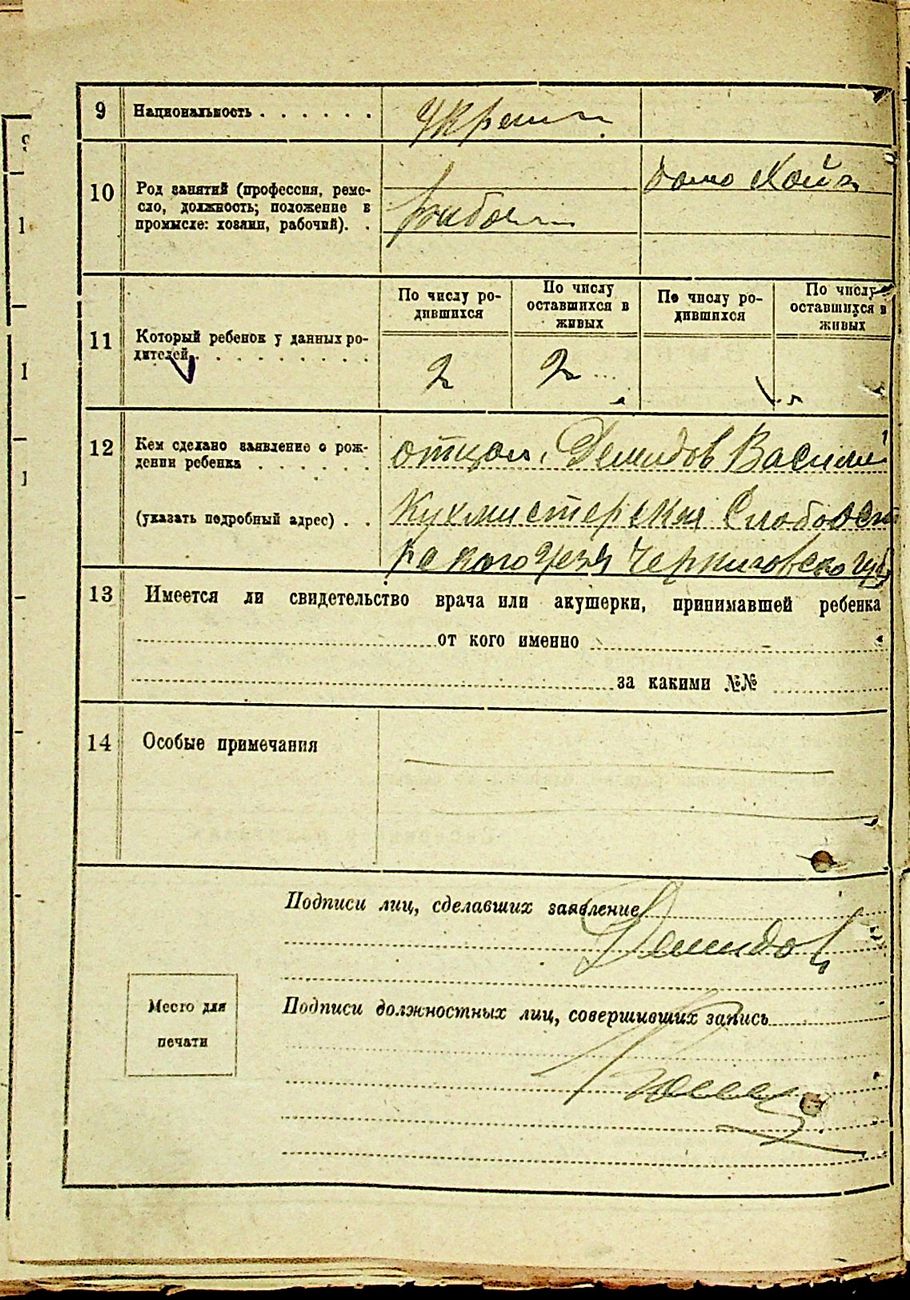 9 Национальность . . . . . . Украин.
10 Род занятий (профессия, реме-
сло, должность; положение в
промысле: хозяин, рабочий). .
домо Хозяй
рабоч
11 Который ребенок у данных ро-
дителей . . . . . . . . .
По числу ро-
дившихся
По числу
оставшихся в
живых
По числу ро-
дившихся
По числу
оставшихся в
живых
2 2
12 Кем сделано заявление о рож-
дении ребенка . . . . . .
отцом. Демидов Васили
(указать подробный адрес) . .
Кухмистерская Слобо
Черниговско губ
13 Имеется ли свидетельство врача или акушерки, принимавшей ребенка
от кого именно
за какими №№
14 Особые примечания
Подписи лиц, сделавших заявление
Демидов
Место для
печати
Подписи должностных лиц, совершивших запись